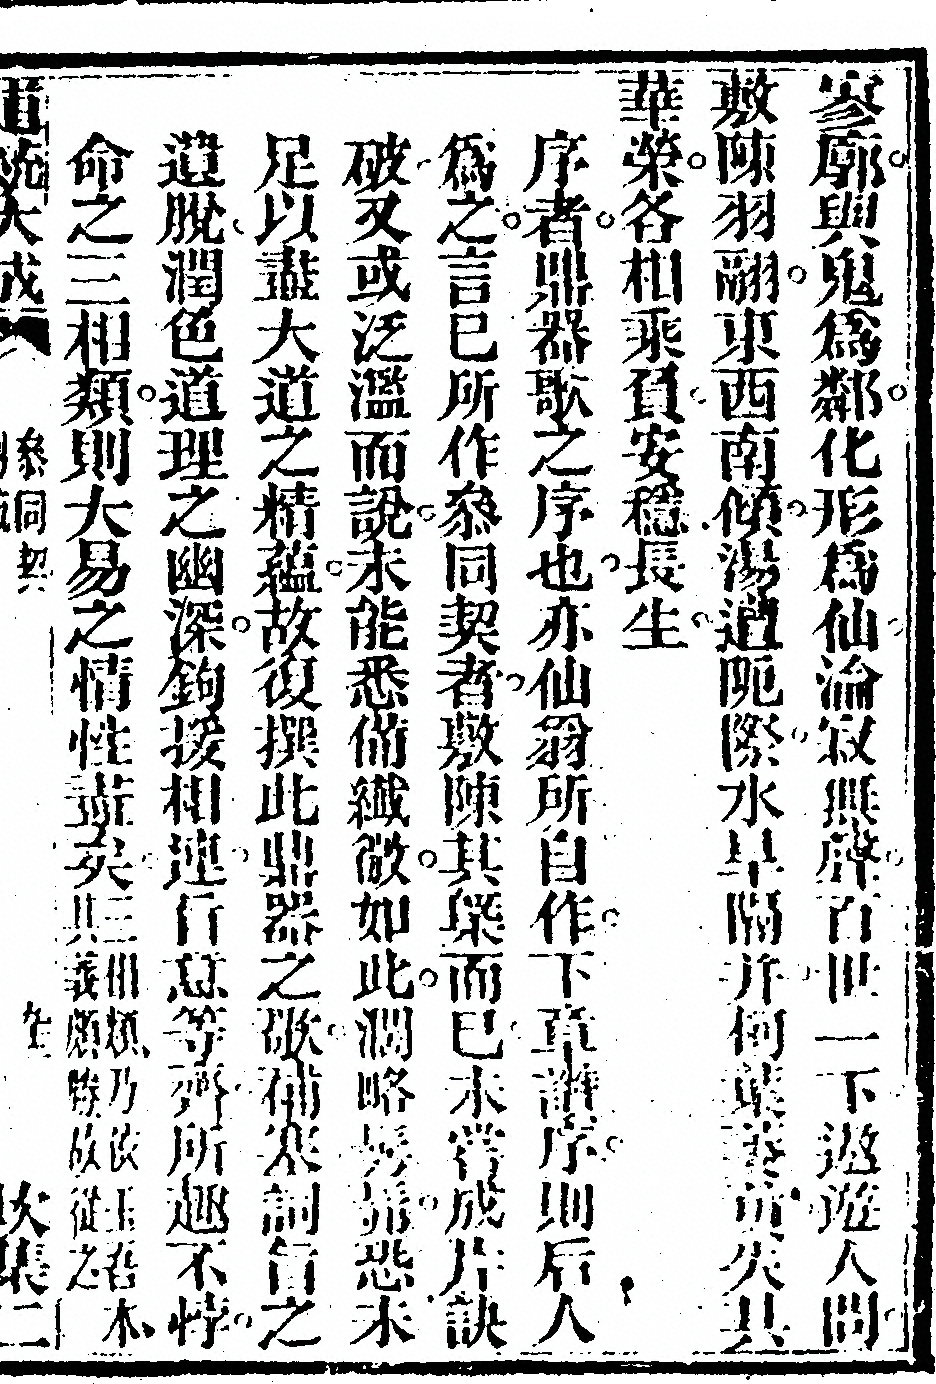 寥廓與鬼爲鄰化形爲仙淪寂無聲百世一下遨遊人間
敷陳羽翮東西南傾湯遭阨際水旱隔并柯葉萎黃失其
華榮各相乘負安穩長生
序者鼎器歌之序也亦仙翁所自作下章讚序則后人
爲之言已所作叅同契者敷陳其槩而已未嘗成片訣
破又或泛濫而說未能悉備纖微如此濶略髣髴恐未
足以盡大道之精蘊故復撰此鼎器之歌補塞詞旨之
遺脫潤色道理之幽深鉤援相逮行意等齊所趣不悖
命之三相類則大易之情性盡矣三相類乃依玉吾本
其義頗勝故從之
道統大成
叅同契
午集二